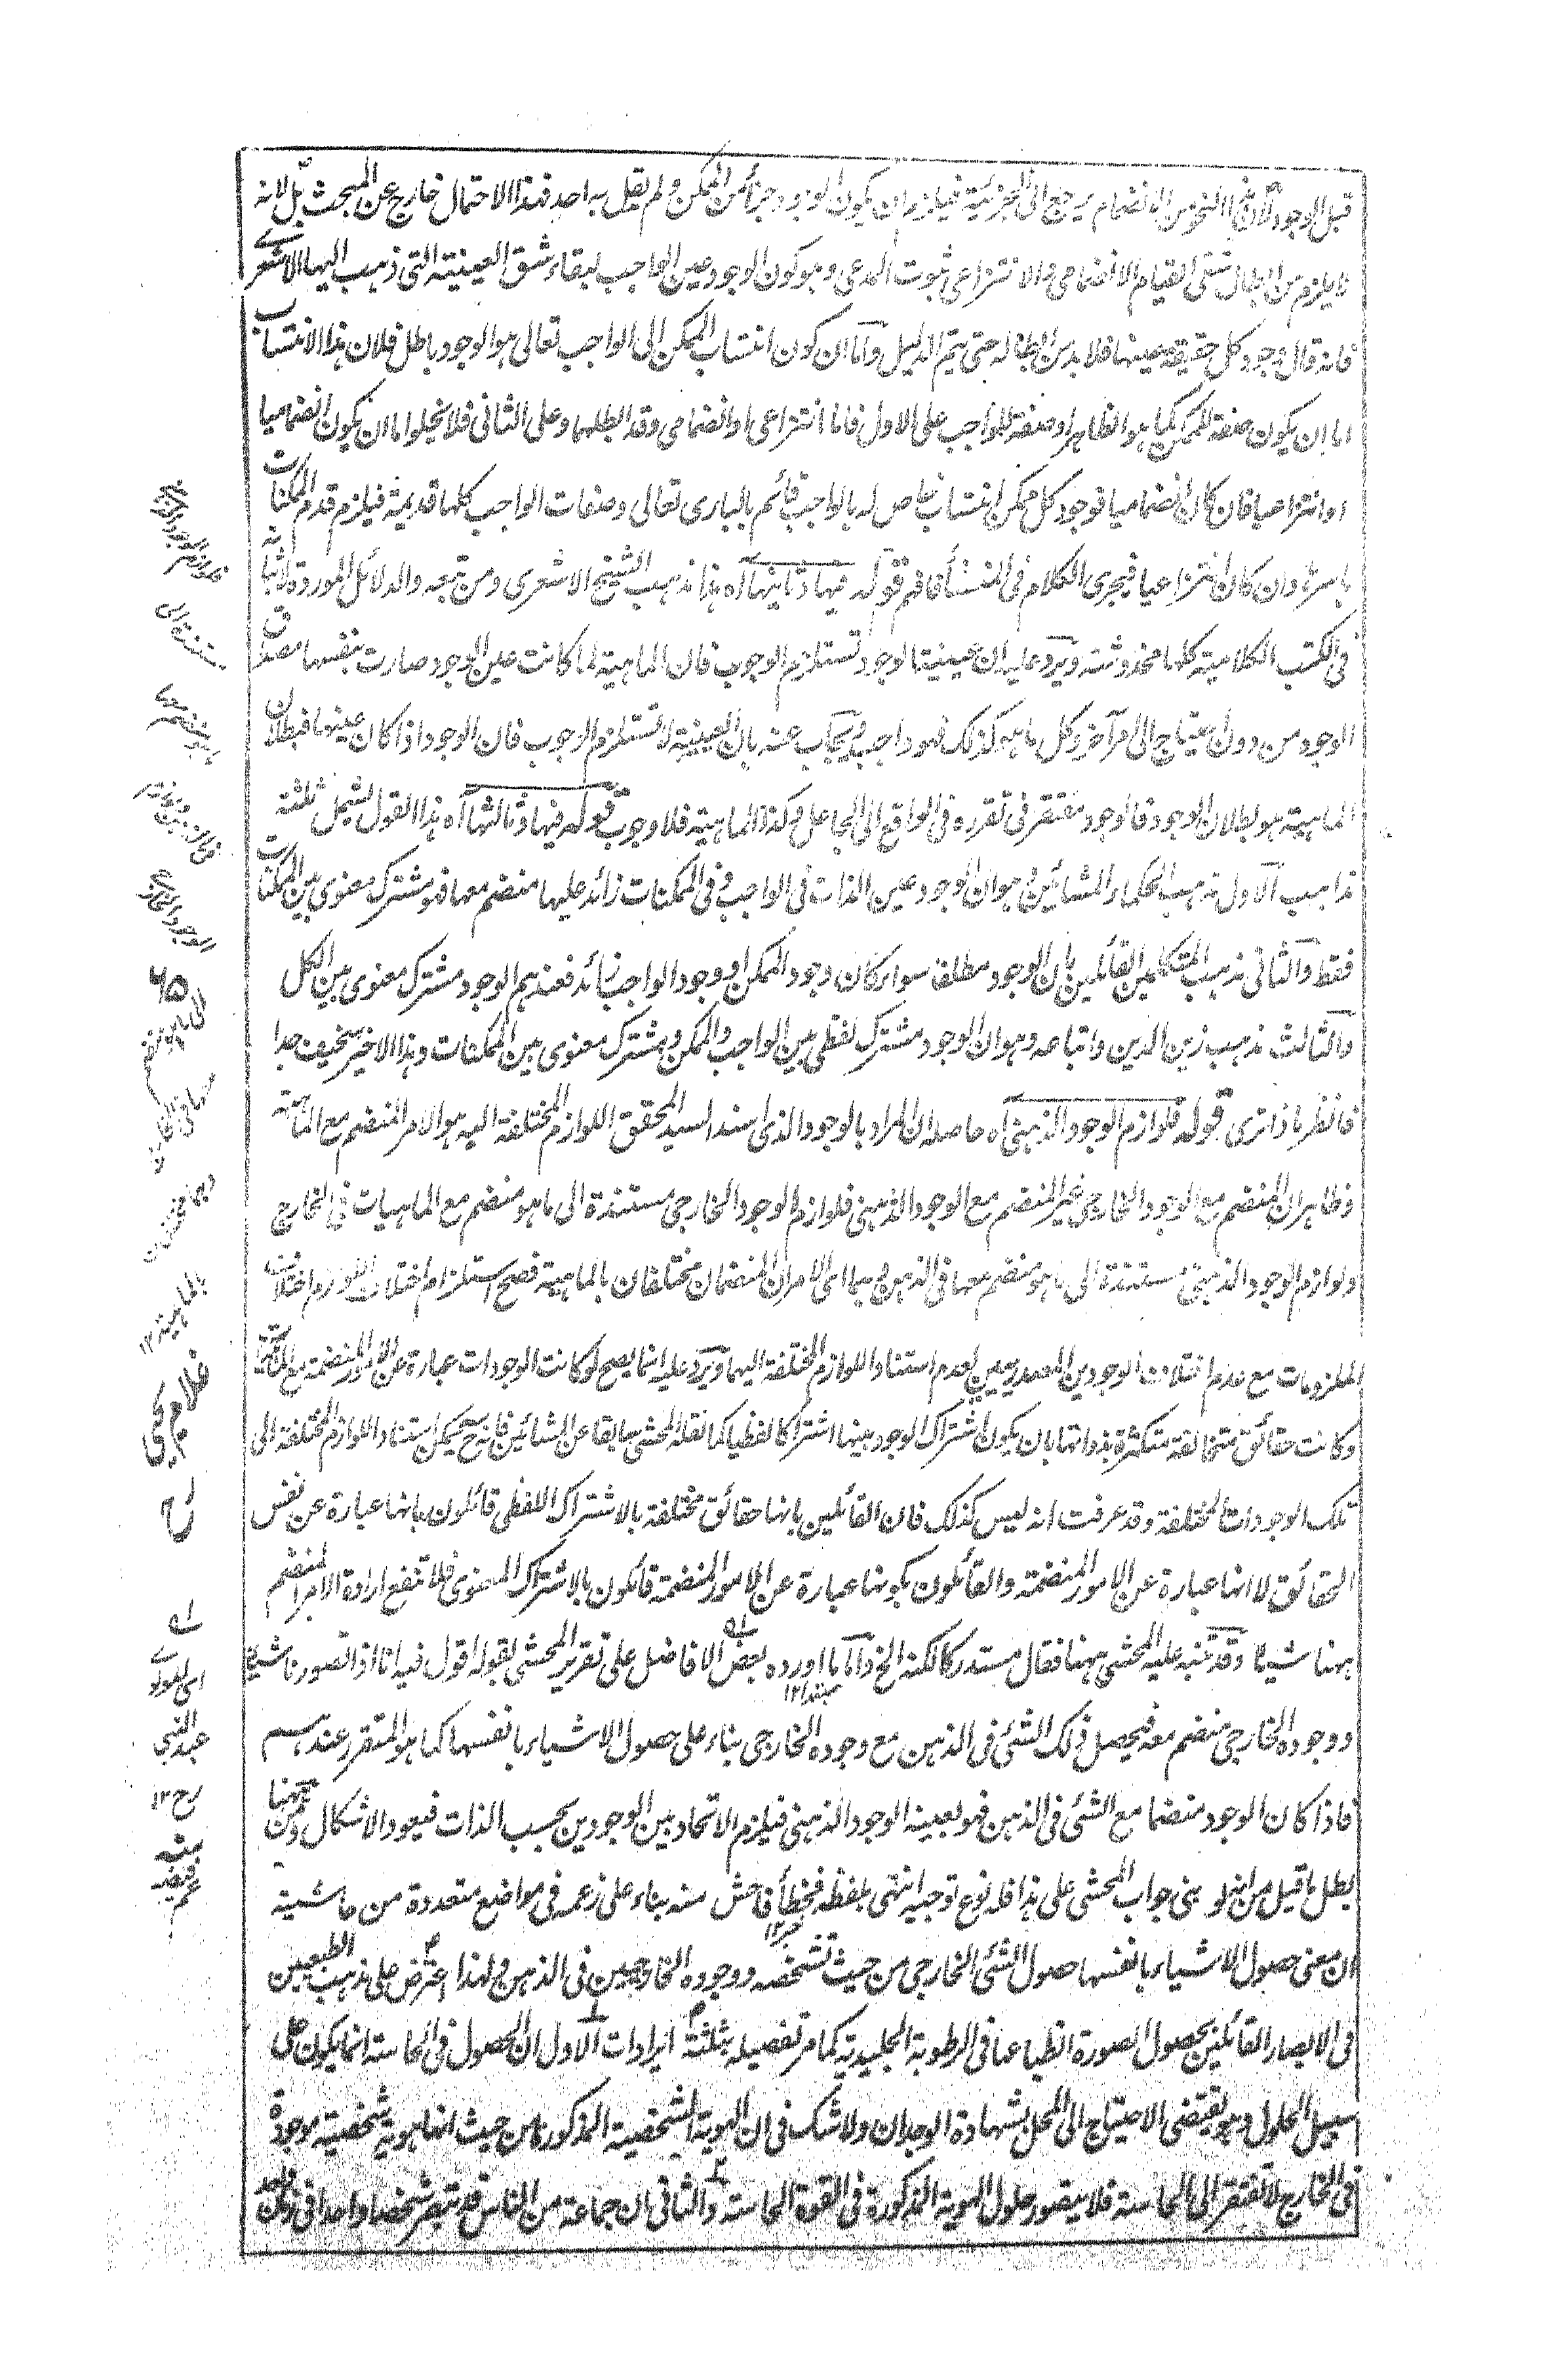 قبل الوجود لأن هذا النحو من الانضمام يرجع الى الجزئية فيلزم ان يكون الوجود جزأ من الممكن ولم يقل به احد فهذا الاحتمال خارج عن المبحث بل لانه
لا يلزم من ابطال شقى القيام الانضمامى والانتزاعى ثبوت المدعى وهو كون الوجود عين الواجب لبقاء شق العينية التى ذهب اليها الاشعرے
فانه قال وجود كل حقيقة عينها فلا بد من ابطاله حتى يتم الدليل واما ان كون انتساب الممكن الى الواجب تعالى هو الوجود باطل فلان هذا الانتساب
اما ان يكون صفة للممكن كما هو الظاهر او صفة للواجب على الاول فاما انتزاعى او انضمامى وقد ابطلهما وعلى الثانى فلا يخلوا ما ان يكون انضماميا
او انتزاعيا فان كان انضماميا فوجود كل ممكن انتساب خاص له بالواجب قائم بالبارى تعالى وصفات الواجب كلها قديمة فيلزم قدم الممكنات
باسرها وان كان انتزاعيا فيجرى الكلام فى المنشأ فافهم قوله فيها وثانيها آه هذا مذهب الشيخ الاشعرى ومن تبعه والدلائل الموردة لاثباته
فى الكتب الكلامية كلها مخدوشة ويرد عليه ان عينية الوجود تستلزم الوجوب فان الماهية لما كانت عين الوجود صارت بنفسها مصداق
الوجود من دون احتياج الى امر آخر وكل ما هو كذلك فهو واجب ويجاب عنه بان العينية لا تستلزم الوجوب فان الوجود اذا كان عينها فبطلان
الماهية هو بطلان الوجود فالوجود مفتقر فى تقرره فى الواقع الى الجاعل وكذا الماهية فلا وجوب قوله فيها وثالثها آه هذا القول يشمل ثلثة
مذاهب الاول مذهب الحكماء المشائين وهو ان الوجود عين الذات فى الواجب وفى الممكنات زائد عليها منضم معها فهو مشترك معنوى بين الممكنات
فقط والثانى مذهب المتكلمين القائلين بان الوجود مطلقا سواء كان وجود الممكن او وجود الواجب زائد فعندهم الوجود مشترك معنوى بين الكل
والثالث مذهب زين الدين واتباعه وهو ان الوجود مشترك لفظى بين الواجب والممكن ومشترك معنوى بين الممكنات وهذا الاخير سخيف جدا
فانظر ماذا ترى قوله فلوازم الوجود الذهنى آه حاصله ان المراد بالوجود الذى اسند السيد المحقق اللوازم المختلفة اليه هو الامر المنضم مع الماهية
وظاهر ان المنضم مع الوجود الخارجى غير المنضم مع الوجود الذهنى فلوازم الوجود الخارجى مستندة الى ما هو منضم مع الماهيات فى الخارج
ولوازم الوجود الذهنى مستندة الى ما هو منضم معها فى الذهن وهما اى الامران المنضمان مختلفان بالماهية فصح استلزام اختلاف اللوازم اختلاف
الملزومات مع عدم اختلاف الوجودين المصدريين لعدم استناد اللوازم المختلفة اليهما ويرد عليه انما يصح لو كانت الوجودات عبارة عن الامور المنضمة مع الماهية
وكانت حقائق متخالفة متكثرة بذواتها بان يكون اشتراك الوجود بينها اشتراكا لفظيا كما نقله المحشى سابقا عن المشائين فانه ح يمكن استناد اللوازم المختلفة الى
تلك الوجودات المختلفة وقد عرفت انه ليس كذلك فان القائلين بانها حقائق مختلفة بالاشتراك اللفظى قائلون بانها عبارة عن نفس
الحقائق لا انها عبارة عن الامور المنضمة والقائلون بكونها عبارة عن الامور المنضمة قائلون بالاشتراك المعنوى فلا تنفع ارادة الامر المنضم
ههنا شيئا وقد تنبه عليه المحشى ههنا فقال مستدركا لكنه الخ واما ما اورده بعض الافاضل على تقرير المحشى بقوله اقول فيه انا اذا تصورنا شيئا
ووجوده الخارجى منضم معه فيحصل ذلك الشئ فى الذهن مع وجوده الخارجى بناء على حصول الاشياء بانفسها كما هو المتقرر عندهم
فاذا كان الوجود منضما مع الشئ فى الذهن فهو بعينه الوجود الذهنى فيلزم الاتحاد بين الوجودين بحسب الذات فيعود الاشكال ومن ههنا
بطل ما قيل من انه لو بنى جواب المحشى على هذا فله نوع توجيه انتهى بلفظه فخطأ فاحش منه بناء على زعمه فى مواضع متعددة من حاشيته
ان معنى حصول الاشياء بانفسها حصول الشئ الخارجى من حيث تشخصه ووجوده الخارجيين فى الذهن ولهذا اعترض على مذهب الطبعيين
فى الابصار القائلين بحصول الصورة انطباعا فى الرطوبة الجليدية كما مر تفصيله بثلثة ايرادات الاول ان الحصول فى الحاسة انما يكون على
سبيل الحلول وهو يقتضى الاحتياج الى المحل بشهادة الوجدان ولا شك فى ان الهوية الشخصية المذكورة من حيث انها هوية شخصية موجودة
فى الخارج لا تفتقر الى الحاسة فلا يتصور حلول الهوية المذكورة فى القوة الحاسة والثانى ان جماعة من الناس قد تبصر شخصا واحدا فى زمان واحد
فلوازم الوجود الخارجى
مستندة الى
ما هو منضم معها
الوجود الخارجى
بالماهية ١٢
غلام يحيى
رح
اى المولوے
عبد النبى
رح ١٢
منه
عم فيضه
مبتدا ١٢
خبر ١٢